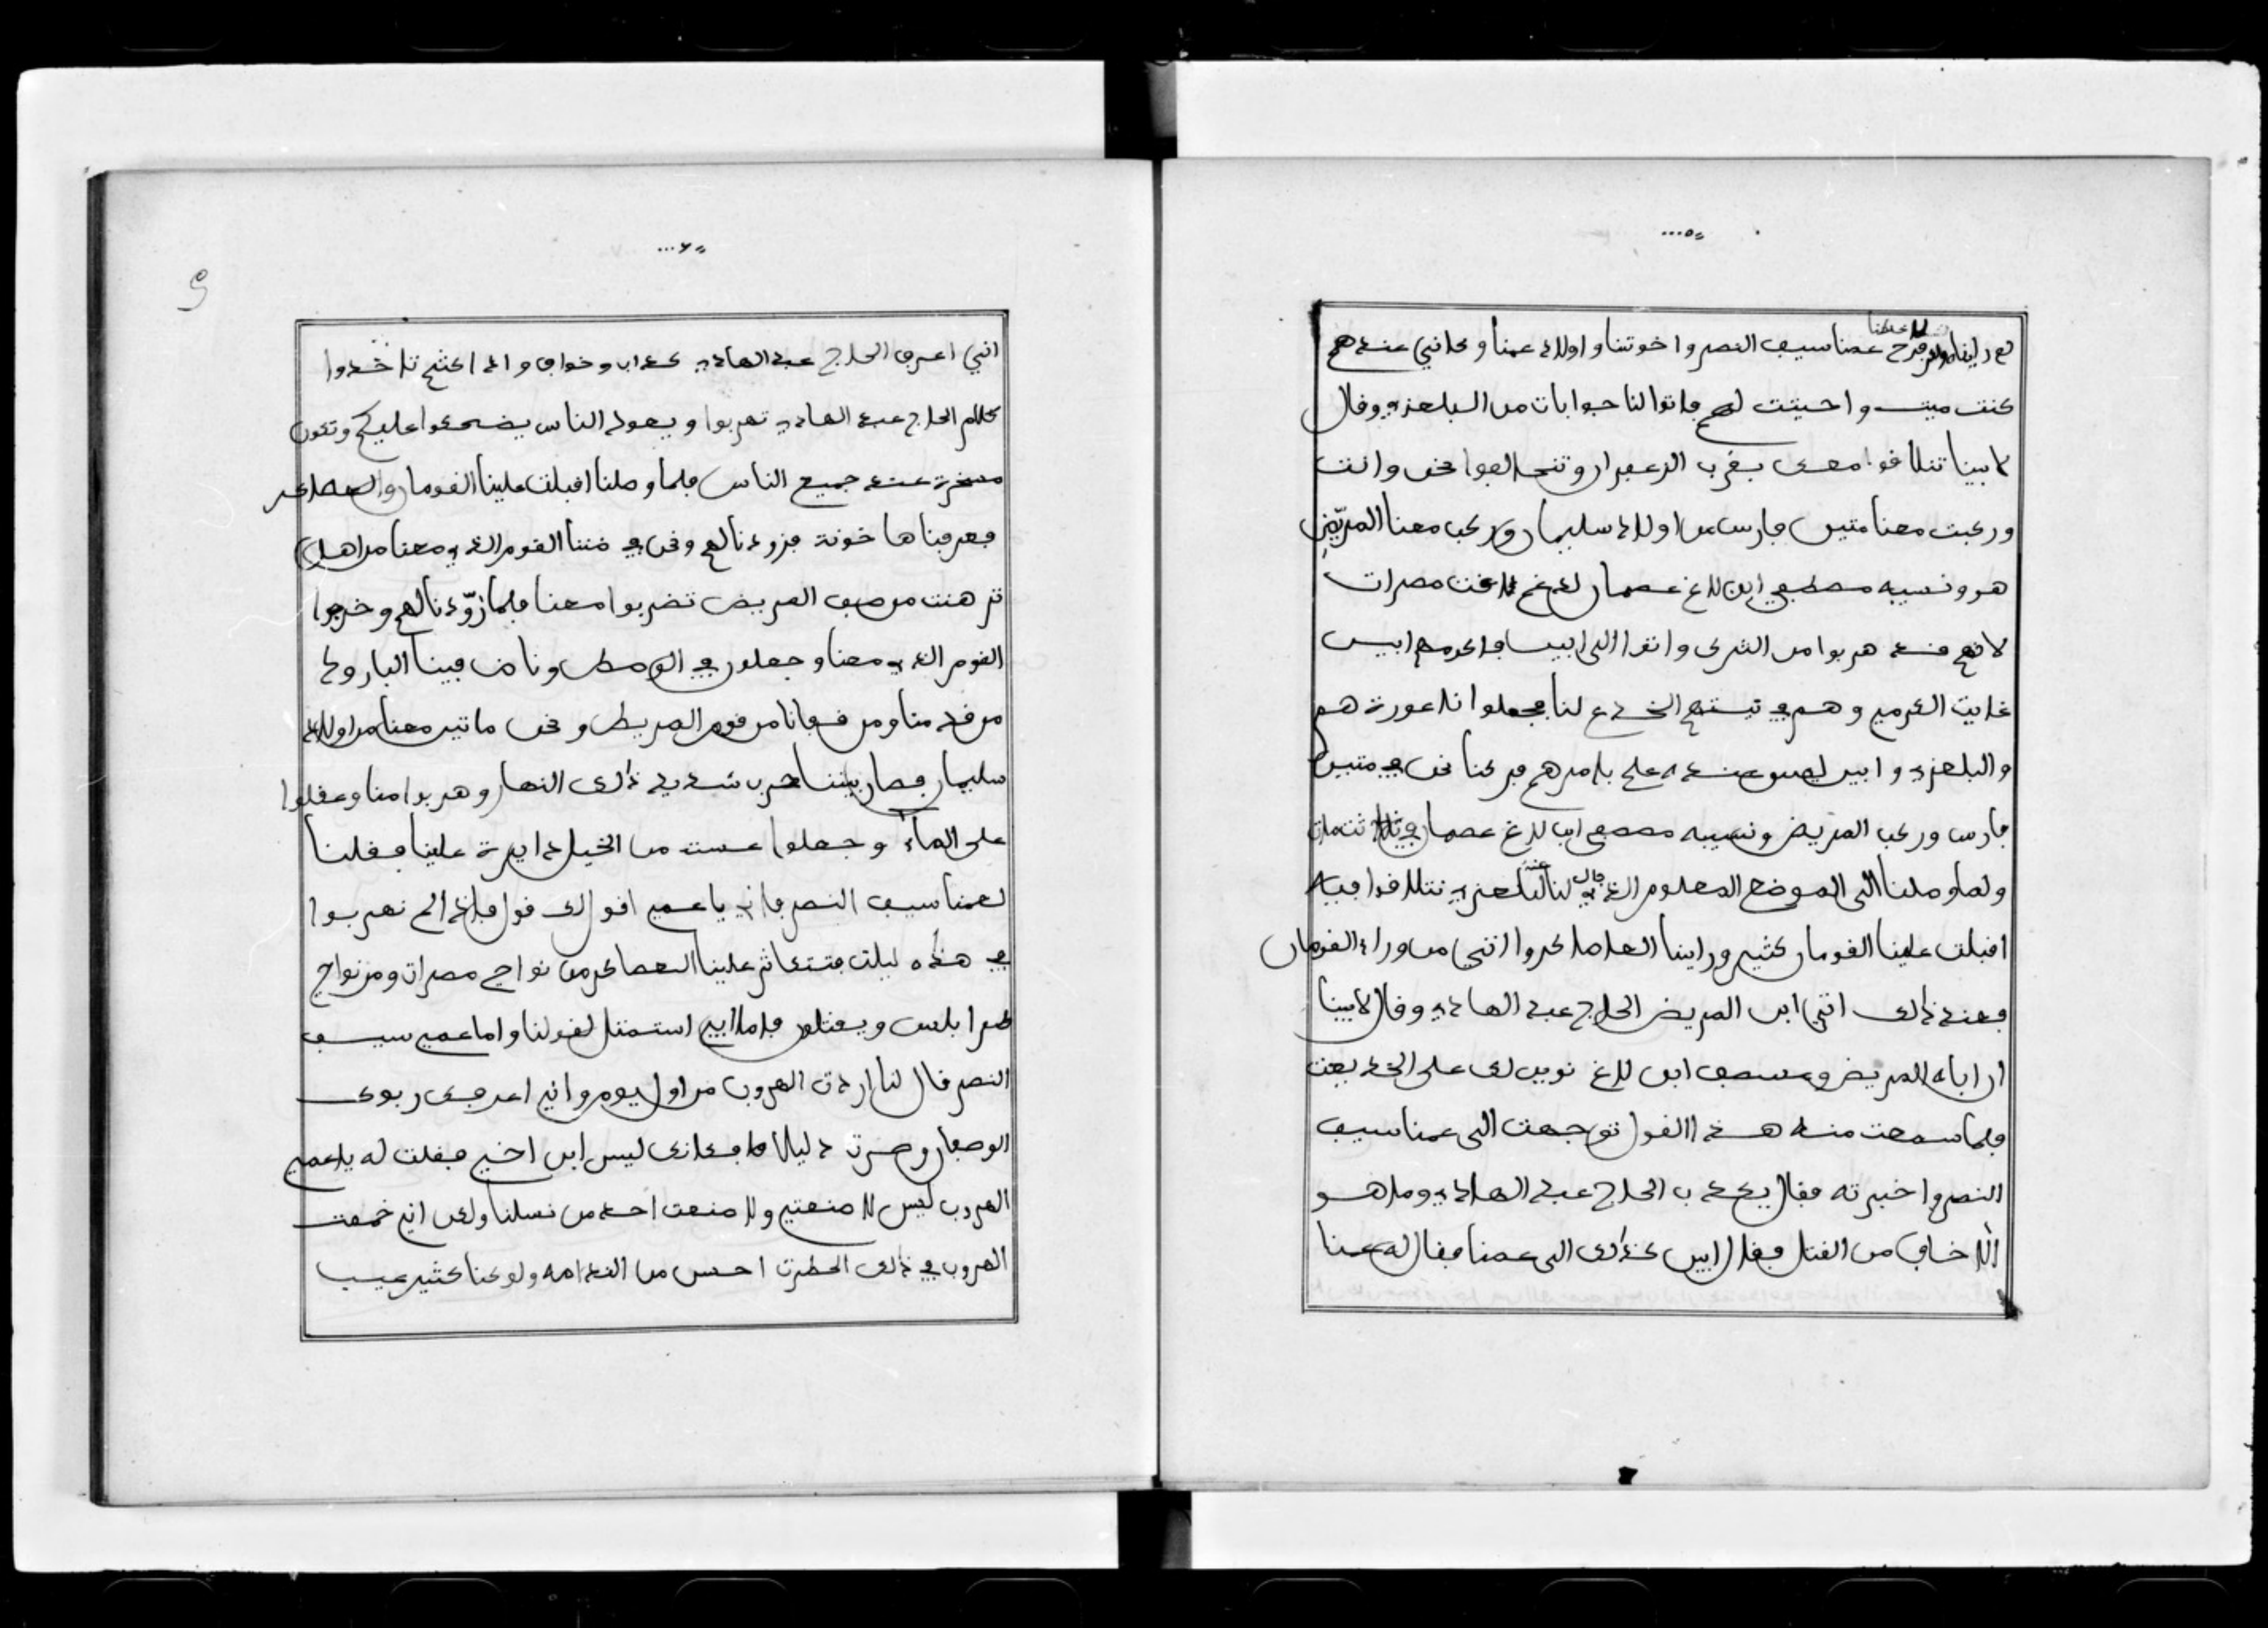 ٥
عمنا سيف النصر واخوتنا واولاد عمنا وكانني عندهم
كنت ميت واحييت لهم فاتوا لنا جوابات من البلعزي وقال
لابينا تتلاقوا معى بقرب الزعفران وتتحالفوا نحن وانت
وركبت معنا متين فارس من اولاد سليمان وركب معنا المريّض
هو ونسيبه مصطفي ابن لاغ عصمان مصرات
هربوا من الترك واتوا الى ابينا فاكرمهم ابي
غايت الكرم وهم في نيتهم الخدع لنا
والبلعزي وابي ليس عنده علم بامرهم فركبنا نحن في متين
فارس وركب المريض ونسيبه مصصفى ابن لاغ عصمان
ولما وصلنا الى الموضع المعلوم الذي قال لنا البلعزي نتلاقوا فيه
اقبلت علينا القومان كثير وراينا العساكر اتني من وراء القومان
فعند ذالك اتني ابن المريض الحاج عبد الهادي وقال لابينا
ان اباه المريض ومصصف ابن لاغ نويين لك على الخديعت
فلما سمعت منه هذا القول توجهت الى عمنا سيف
النصر واخبرته فقال يكذب الحاج عبد الهادي وما هو
الا خاف من القتل فقال ابي كذالك الى عمنا فقال له عمنا
٦
انني اعرف الحاج عبد الهادي كذاب وخواف واذا كنتم تاخذوا
كلام الحاج عبد الهادي تهربوا ويعود الناس يضحكوا عليكم وتكون
مسخرة عند جميع الناس فلما وصلنا اقبلت علينا القومان والعصاكر
فعرفناها خونة فزودنا لهم ونحن في ضننا القوم الذي معنا من اهل
ترهنت من صف المريض تضربوا معنا فلما زوّدنا لهم وخرجوا
القوم الذي معنا وجعلون في الوصط وناض فينا البارود
من قدمنا ومن قفانا من قوم المريض ونحن ماتين معنا من اولاد
سليمان فصار بيننا حرب شديد ذالك النهار وهربوا منا وعقلوا
على الماء وجعلوا عست من الخيل دايرة علينا فقلنا
لعمنا سيف النصر فاني يا عمي اقول لك قول فاذا لم نهربوا
في هذه ليلت فتتكاثر علينا العصاكر من نواحي مصرات ومن نواحي
طرابلس ويقتلون فاما ابي استمتل لقولنا واما عمي سيف
النصر قال لنا اردت الهروب من اول يوم واني اعرفك ربوى
الوصفان وصرت دليلا فكانك ليس ابن اخي فقلت له يا عمي
الهروب ليس لا منعتني ولا منعت احد من نسلنا ولكن اني خممت
الهروب في ذالك الحطرت احسن من الندامه ولو كنا كثير عيب